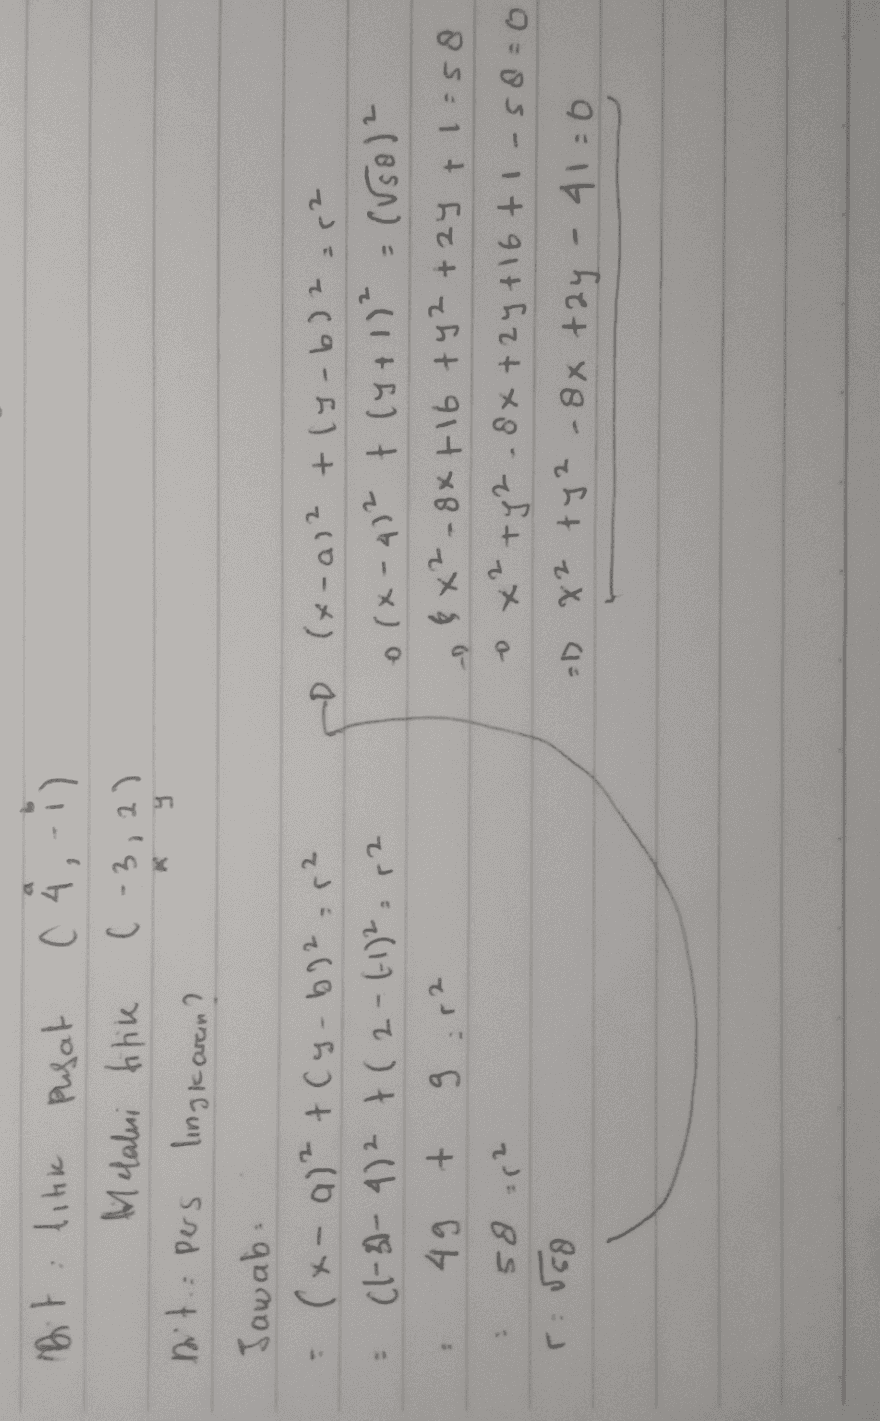 Dit : titik pusat (4, -1)
a b
Melalui titik (-3, 2)
x y
Dit : Pers lingkaran?
Jawab :
= (x - a)² + (y - b)² = r²
= ((-3) - 4)² + (2 - (-1)² = r²
= 49 + 9 = r²
= 58 = r²
r = √58
→ (x - a)² + (y - b)² = r²
→ (x - 4)² + (y + 1)² = (√58)²
→ x² - 8x + 16 + y² + 2y + 1 = 58
→ x² + y² - 8x + 2y + 16 + 1 - 58 = 0
⇒ x² + y² - 8x + 2y - 41 = 0